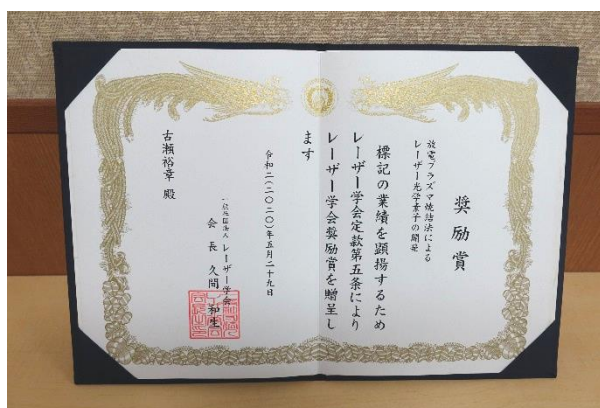 奨励賞
放電プラズマ焼結法による
レーザー光学素子の開発
標記の業績を顕揚するため
レーザー学会定款第五条により
レーザー学会奨励賞を贈呈し
ます
令和二(二〇二〇)年五月二十九日
一般社団法人 レーザー学会
会長 久間 和生
古瀬裕章 殿